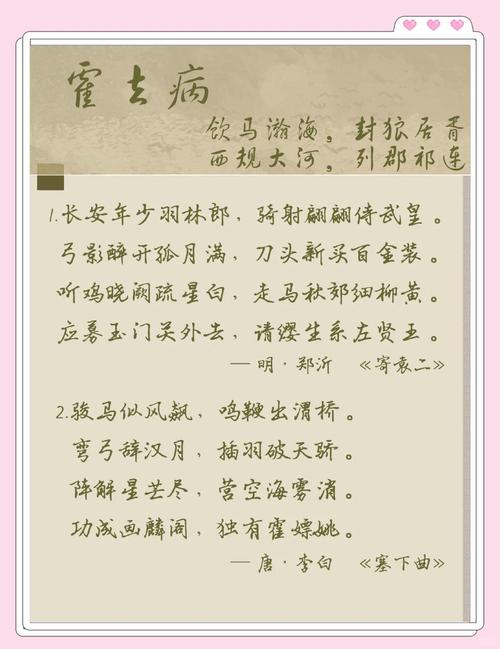 霍去病
饮马瀚海。封狼居胥
西规大河。列郡祁连
1.长安年少羽林郎，骑射翩翩侍武皇。
弓影醉开孤月满，刀头新买百金装。
听鸡晓阙疏星白，走马秋郊细柳黄。
应募玉门关外去，请缨生系左贤王。
— 明·郑沂 《寄袁二》
2.骏马似风飙，鸣鞭出渭桥。
弯弓辞汉月，插羽破天骄。
阵解星芒尽，营空海雾消。
功成画麟阁，独有霍嫖姚。
— 唐·李白 《塞下曲》